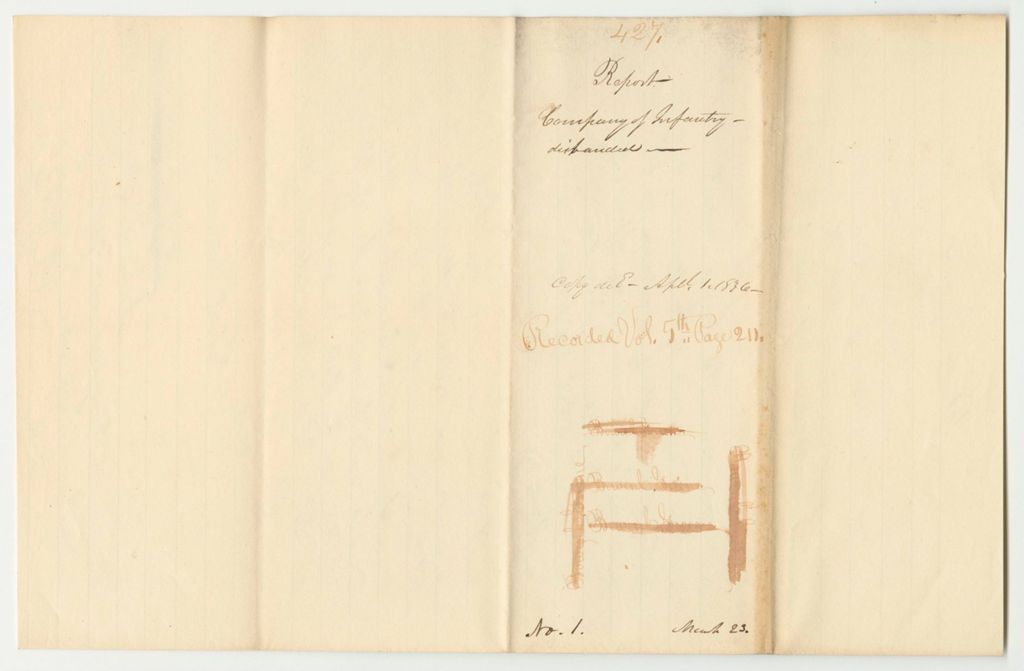 427.
Report
Company of Infantry –
disbanded —
Copy del – Apl. 1. 1836 –
Recorded Vol. 7th Page 211.
No. 1. March 23.